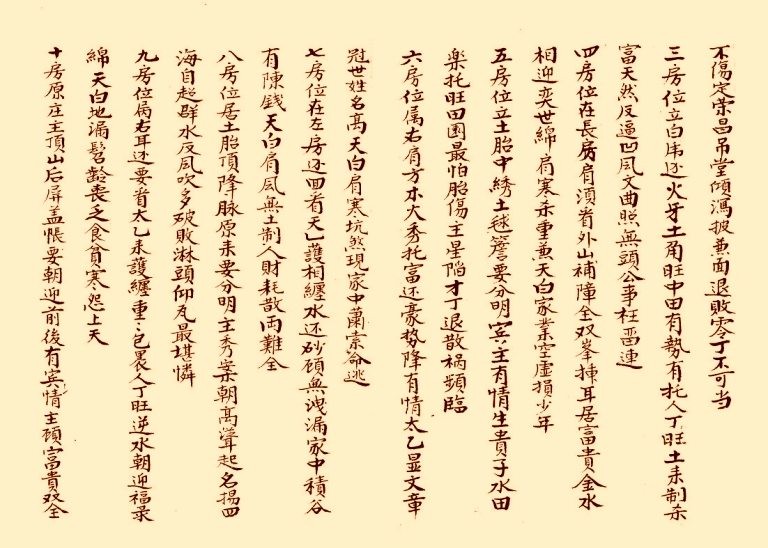 不傷定荣昌吊堂傾瀉披蕉面退敗零丁不可当
三房位立白虎还火牙土角旺中田有勢有托人丁旺土耒制杀
富天然反逼凹凤文曲照無頭公事枉啚連
四房位在長房肩須看外山補障全双峯揀耳居富貴金水
相迎奕世綿肩寒杀重兼天白家業空虛損少年
五房位立土胎中綉土毬簷要分明賓主有情生貴子水田
楽托旺田園最怕胎傷主星陷才丁退散禍頻臨
六房位属右肩方木大秀托富还豪势降有情太乙显文章
冠世姓名高天白肩寒坑煞現家中蘭索命逃
七房位在左房还回看天乙護相纏水还砂顾無洩漏家中積谷
有陳錢天白肩凤無土制人財耗散両難全
八房位居土胎頂降脉原耒要分明主秀案朝高聳起名揚四
海自超群水反凤吹多破敗淋頭仰瓦最堪憐
九房位属右耳还要看太乙耒護纏重〻包裹人丁旺逆水朝迎福录
綿天白地漏髫齡喪乏食貧寒怨上天
十房原庄主頂山后屏盖帳要朝迎前後有宾情主顾富貴双全